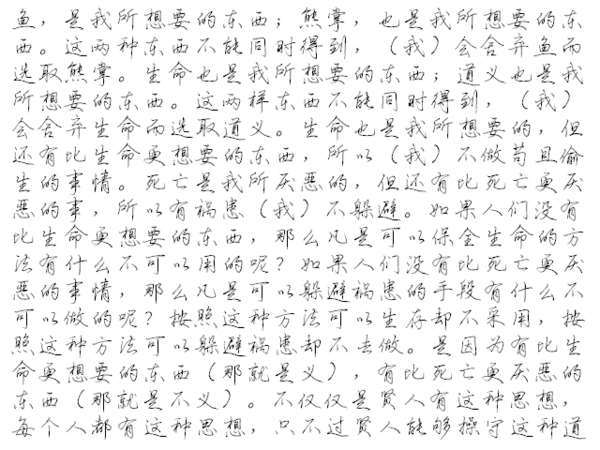 鱼，是我所想要的东西；熊掌，也是我所想要的东
西。这两种东西不能同时得到，（我）会舍弃鱼而
选取熊掌。生命也是我所想要的东西；道义也是我
所想要的东西。这两样东西不能同时得到，（我）
会舍弃生命而选取道义。生命也是我所想要的，但
还有比生命更想要的东西，所以（我）不做苟且偷
生的事情。死亡是我所厌恶的，但还有比死亡更厌
恶的事，所以有祸患（我）不躲避。如果人们没有
比生命更想要的东西，那么凡是可以保全生命的方
法有什么不可以用的呢？如果人们没有比死亡更厌
恶的事情，那么凡是可以躲避祸患的手段有什么不
可以做的呢？按照这种方法可以生存却不采用，按
照这种方法可以躲避祸患却不去做。是因为有比生
命更想要的东西（那就是义），有比死亡更厌恶的
东西（那就是不义）。不仅仅是贤人有这种思想，
每个人都有这种思想，只不过贤人能够操守这种道